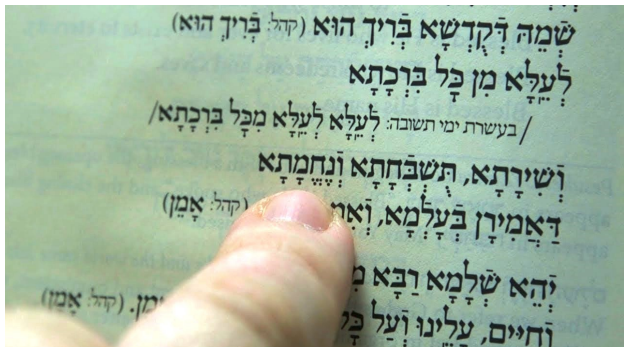 שְׁמֵהּ דְּקֻדְשָׁא בְּרִיךְ הוּא (קהל: בְּרִיךְ הוּא)
לְעֵלָּא מִן כָּל בִּרְכָתָא
/בעשרת ימי תשובה: לְעֵלָּא לְעֵלָּא מִכָּל בִּרְכָתָא/
וְשִׁירָתָא, תֻּשְׁבְּחָתָא וְנֶחֱמָתָא
דַּאֲמִירָן בְּעָלְמָא, (קהל: אָמֵן)
יְהֵא שְׁלָמָא רַבָּא
וְחַיִּים, עָלֵינוּ וְעַל (קהל: אָמֵן)